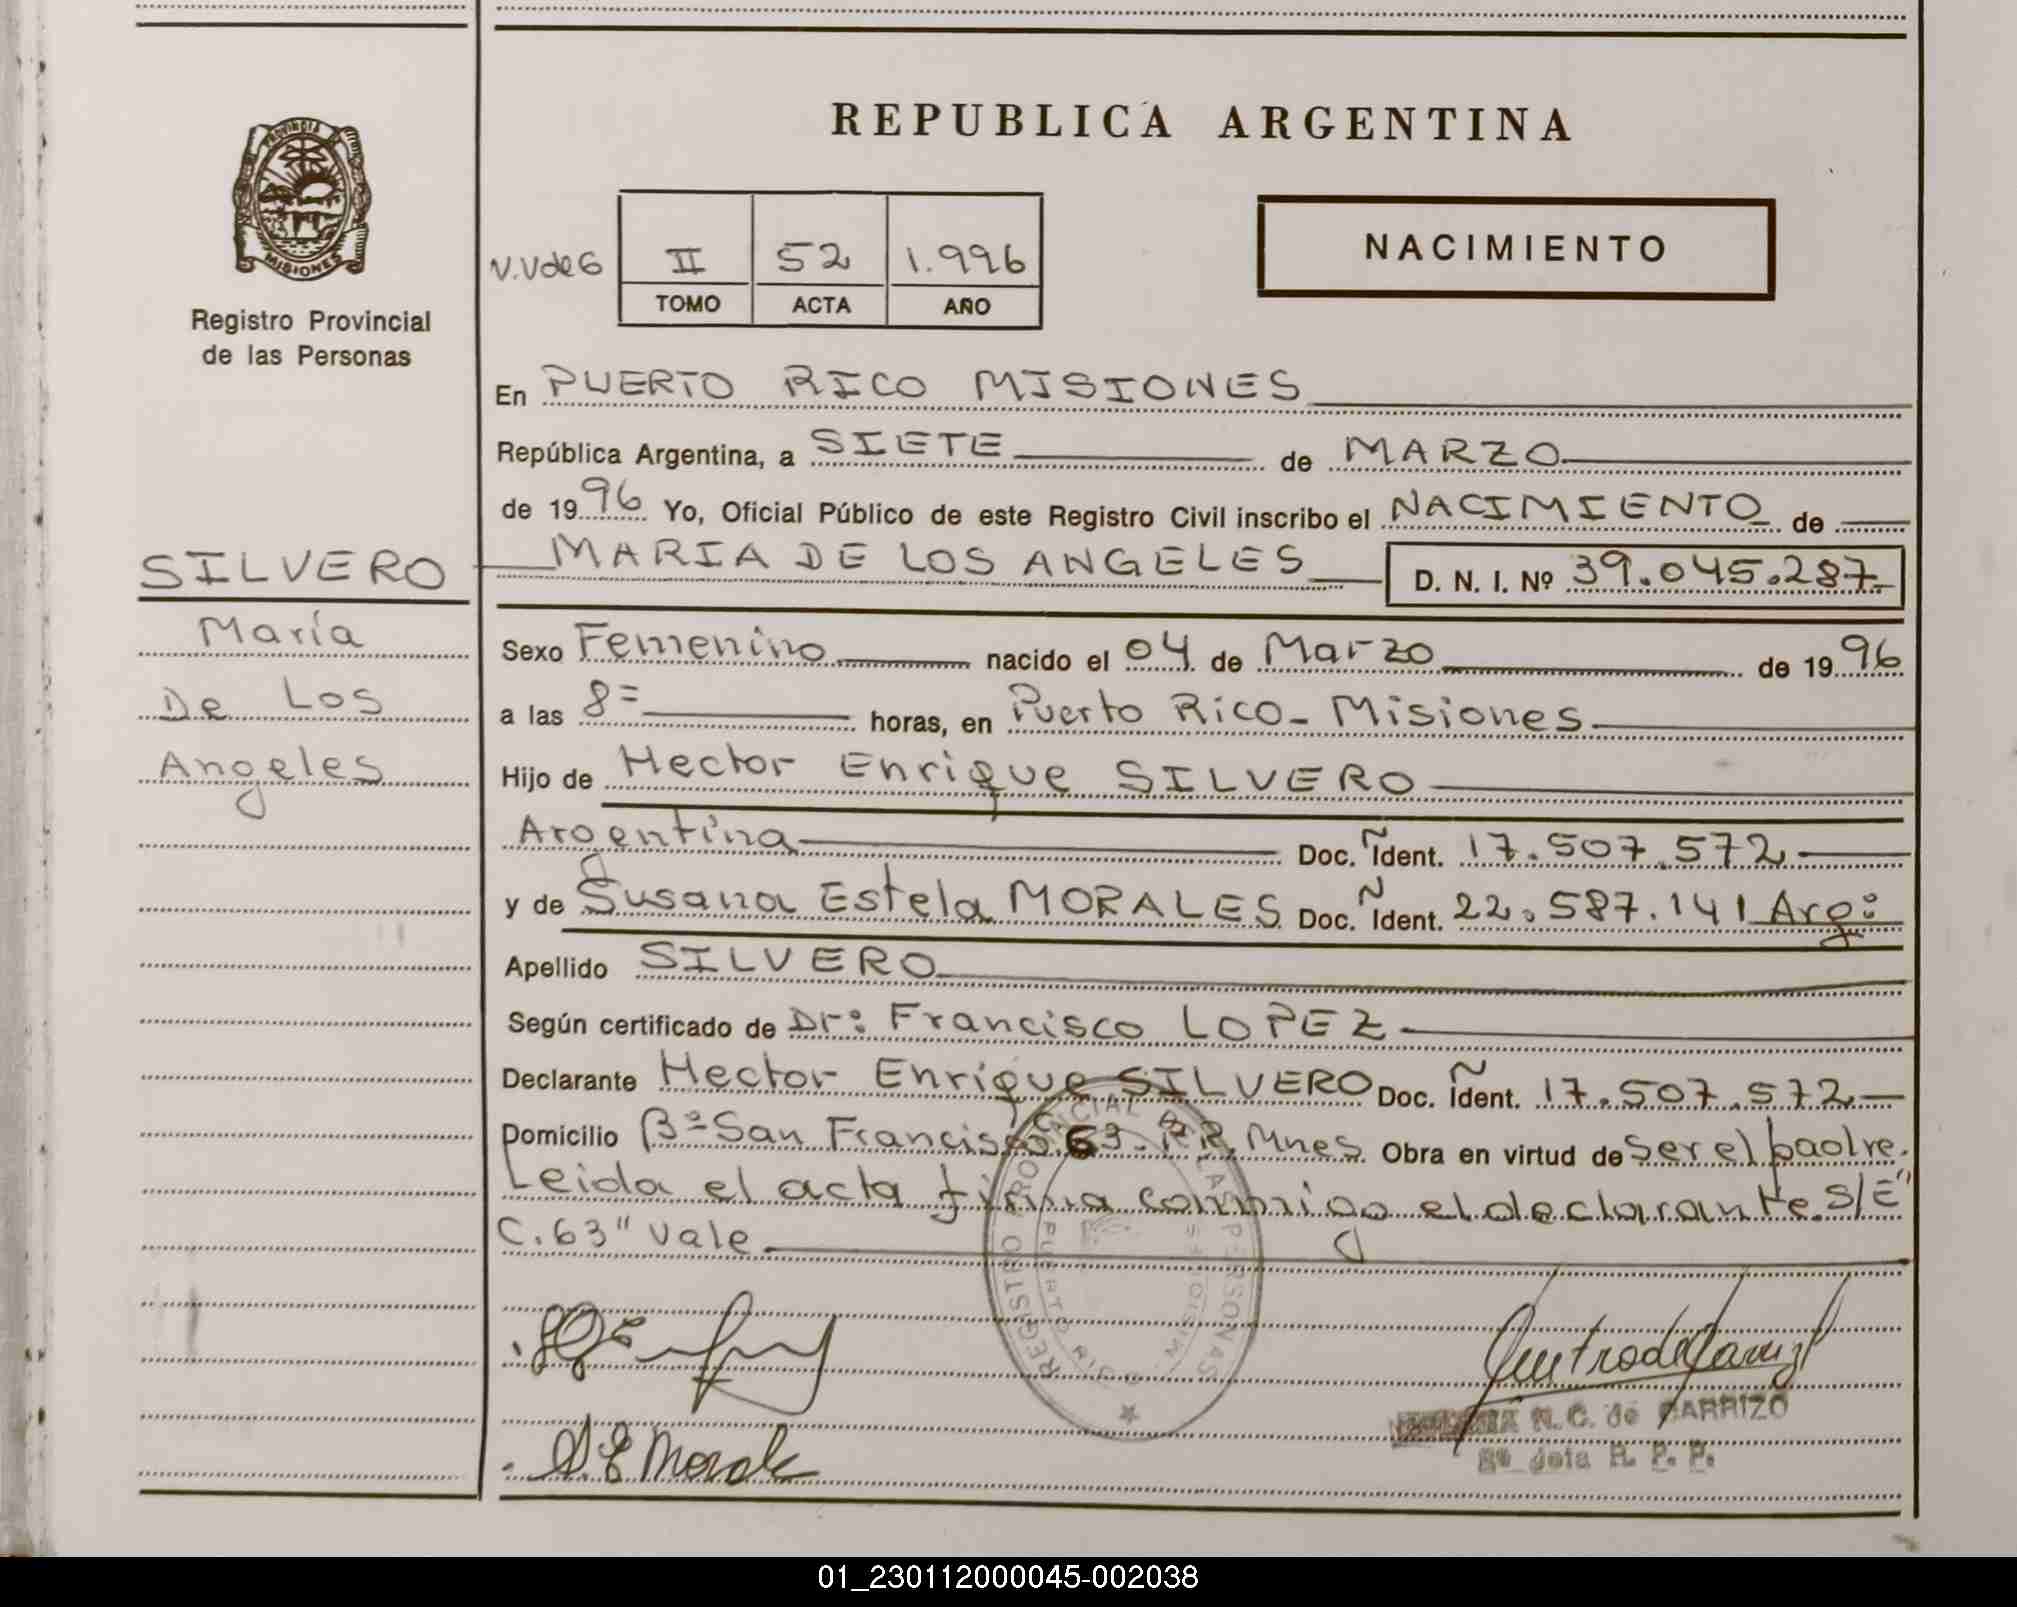 REPUBLICA ARGENTINA
PROVINCIA DE MISIONES
Registro Provincial
de las Personas
V.V de G
II 52 1.996
TOMO ACTA AÑO
NACIMIENTO
En PUERTO RICO MISIONES
República Argentina, a SIETE de MARZO
de 1996 Yo, Oficial Público de este Registro Civil inscribo el NACIMIENTO de
MARIA DE LOS ANGELES D. N. I. Nº 39.045.287
SILVERO
María
De Los
Angeles
Sexo Femenino nacido el 04 de Marzo de 1996
a las 8= horas, en Puerto Rico - Misiones
Hijo de Hector Enrique SILVERO
Argentina Doc. Ident. Ñ 17.507.572
y de Susana Estela MORALES Doc. Ident. Ñ 22.587.141 Arg:
Apellido SILVERO
Según certificado de Dr: Francisco LOPEZ
Declarante Hector Enrique SILVERO Doc. Ident. Ñ 17.507.572
Domicilio Bº San Francisco C. 63. P.R. Mnes. Obra en virtud de ser el padre.
Leida el acta firma conmigo el declarante. S/E"
C. 63" Vale
REGISTRO PROVINCIAL DE LAS PERSONAS
PUERTO RICO MISIONES
S.E Morale
N. C. de CARRIZO
2º Jefa R. P. P.
01_230112000045-002038